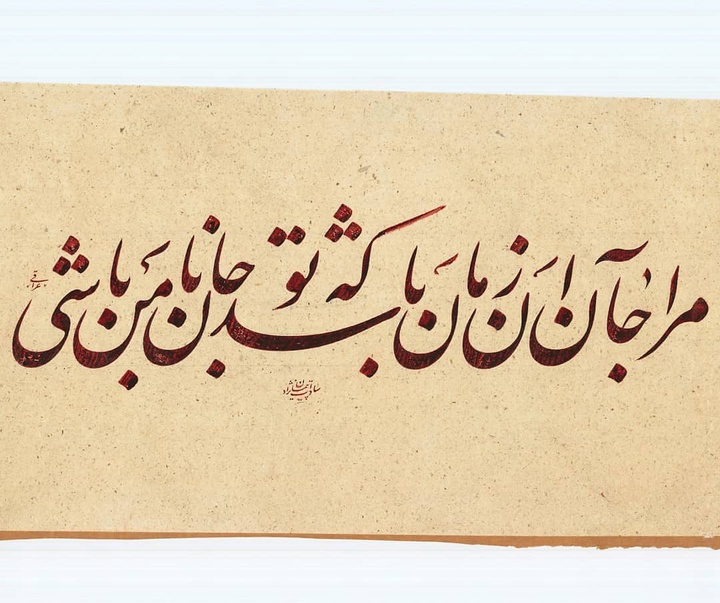 مرا جان آن زمان باشد که تو جانان من باشی
عراقی